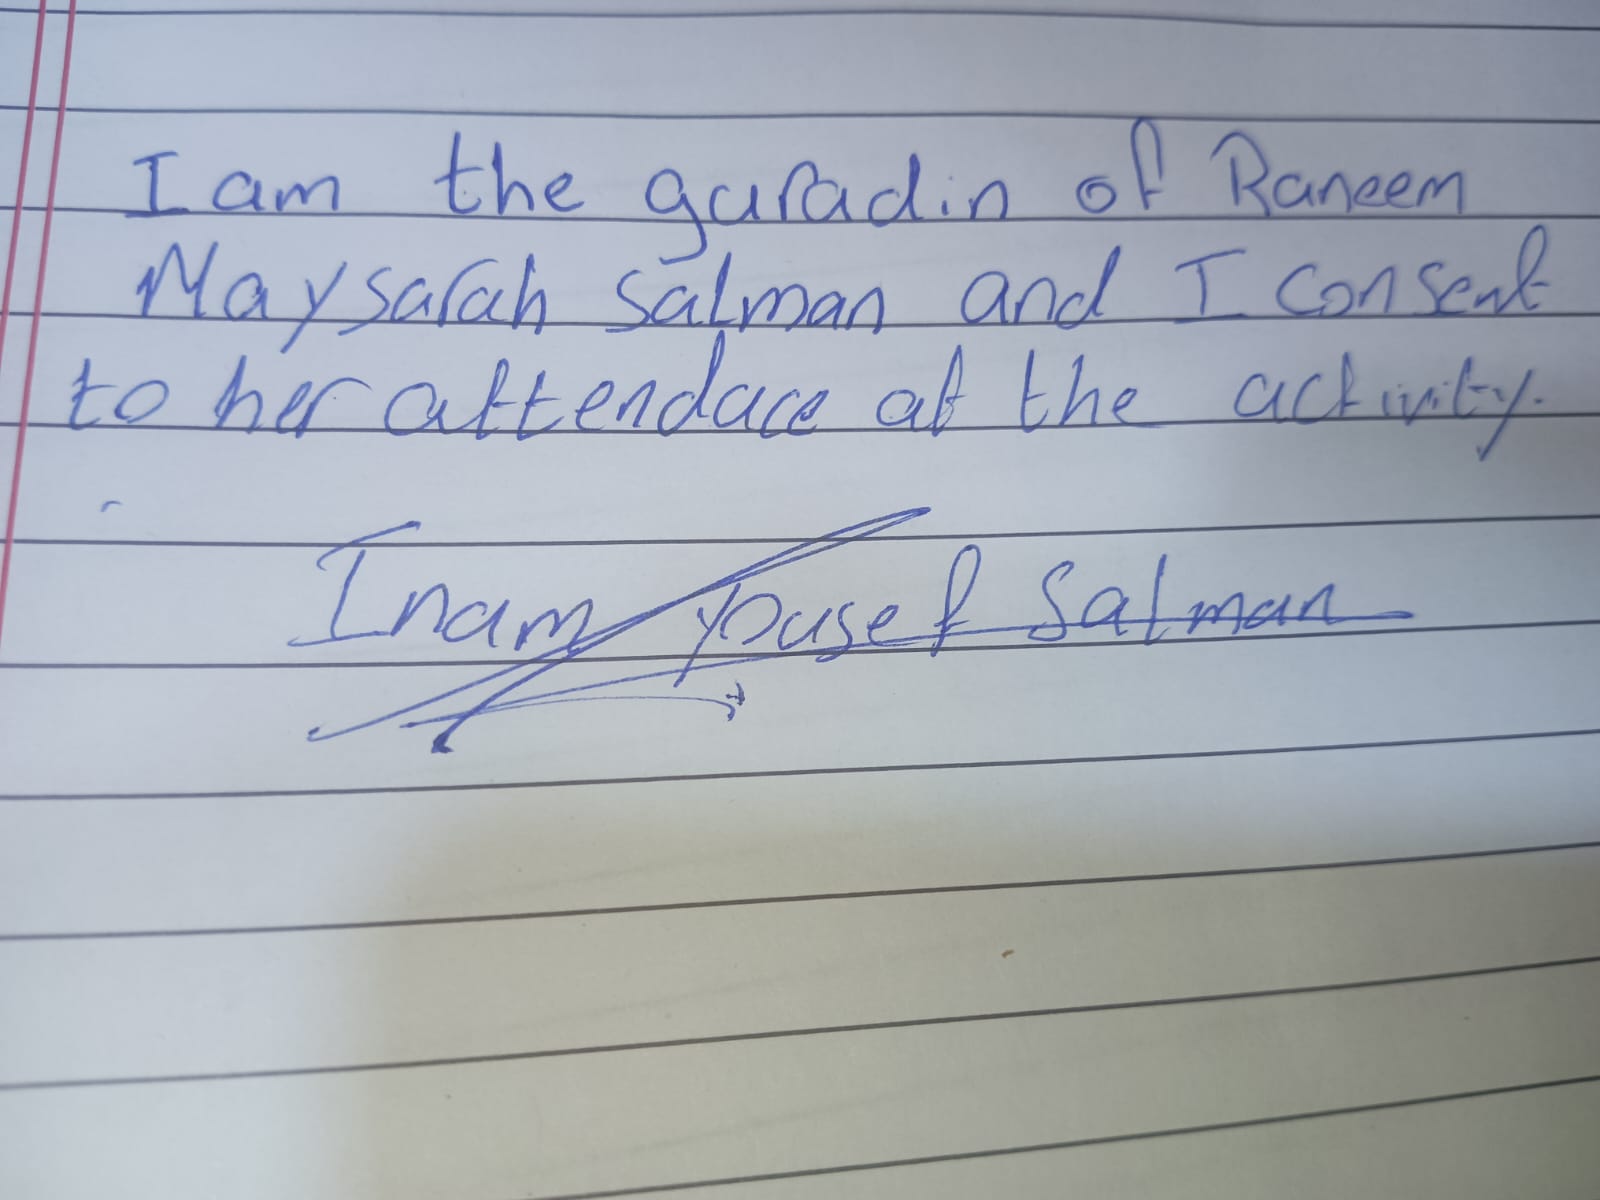 I am the guradin of Raneem
Maysarah Salman and I consent
to her attendace at the activity.
Inam Yousef Salman